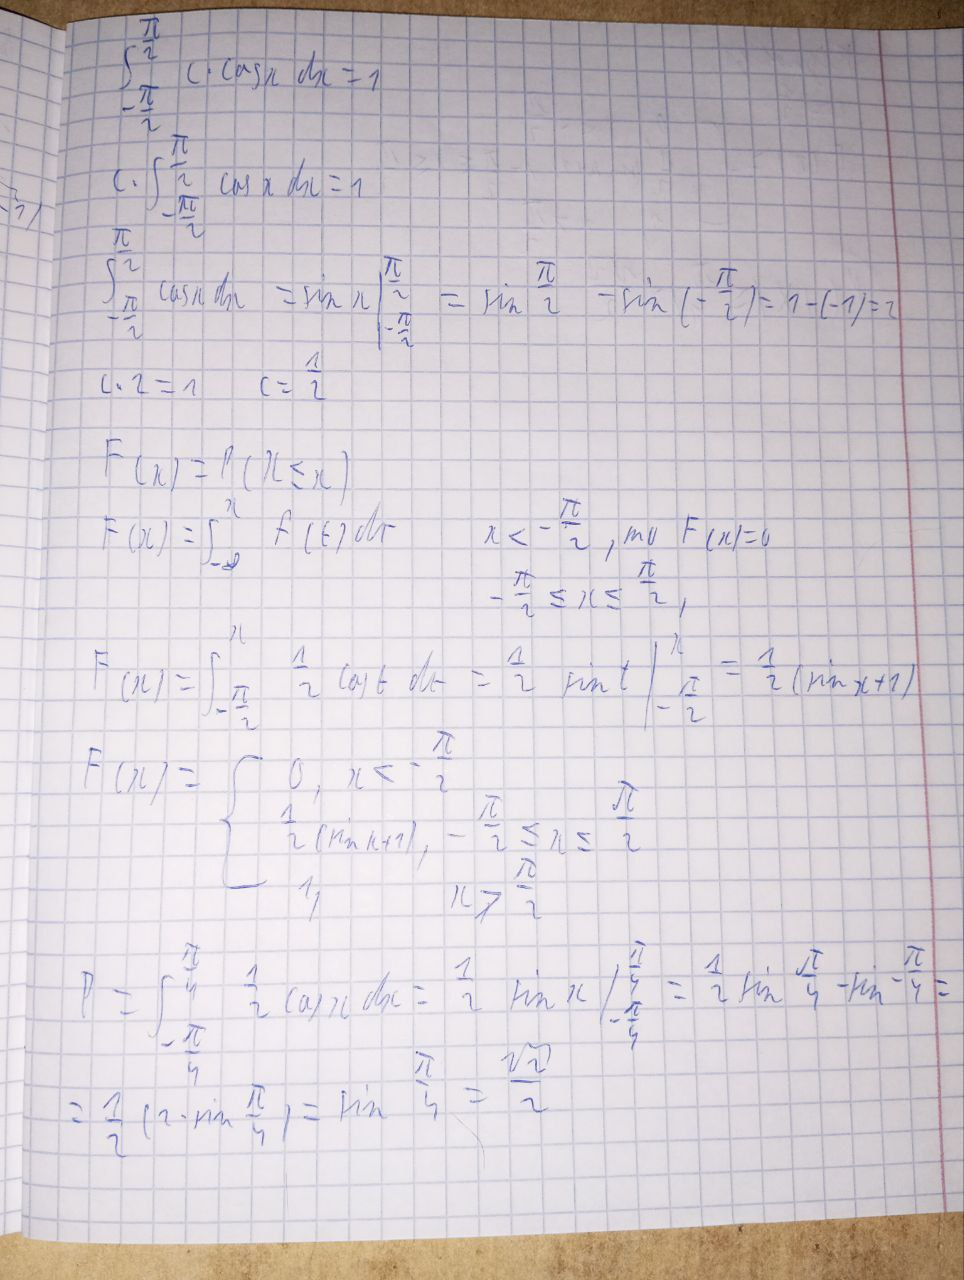 ∫_{-π/2}^{π/2} c·cosx dx = 1
c·∫_{-π/2}^{π/2} cos x dx = 1
∫_{-π/2}^{π/2} cosx dx = sin x |_{-π/2}^{π/2} = sin π/2 - sin (-π/2) = 1-(-1) = 2
c·2 = 1 c = 1/2
F(x) = P(X ≤ x)
F(x) = ∫_{-∞}^{x} f(t) dt x < -π/2, то F(x)=0
-π/2 ≤ x ≤ π/2,
F(x) = ∫_{-π/2}^{x} 1/2 cost dt = 1/2 sin t |_{-π/2}^{x} = 1/2 (sin x+1)
F(x) = { 0, x < -π/2
1/2 (sin x+1), -π/2 ≤ x ≤ π/2
1, x > π/2
P = ∫_{-π/4}^{π/4} 1/2 cosx dx = 1/2 sin x |_{-π/4}^{π/4} = 1/2 sin π/4 - sin -π/4 =
= 1/2 (2·sin π/4) = sin π/4 = √2/2